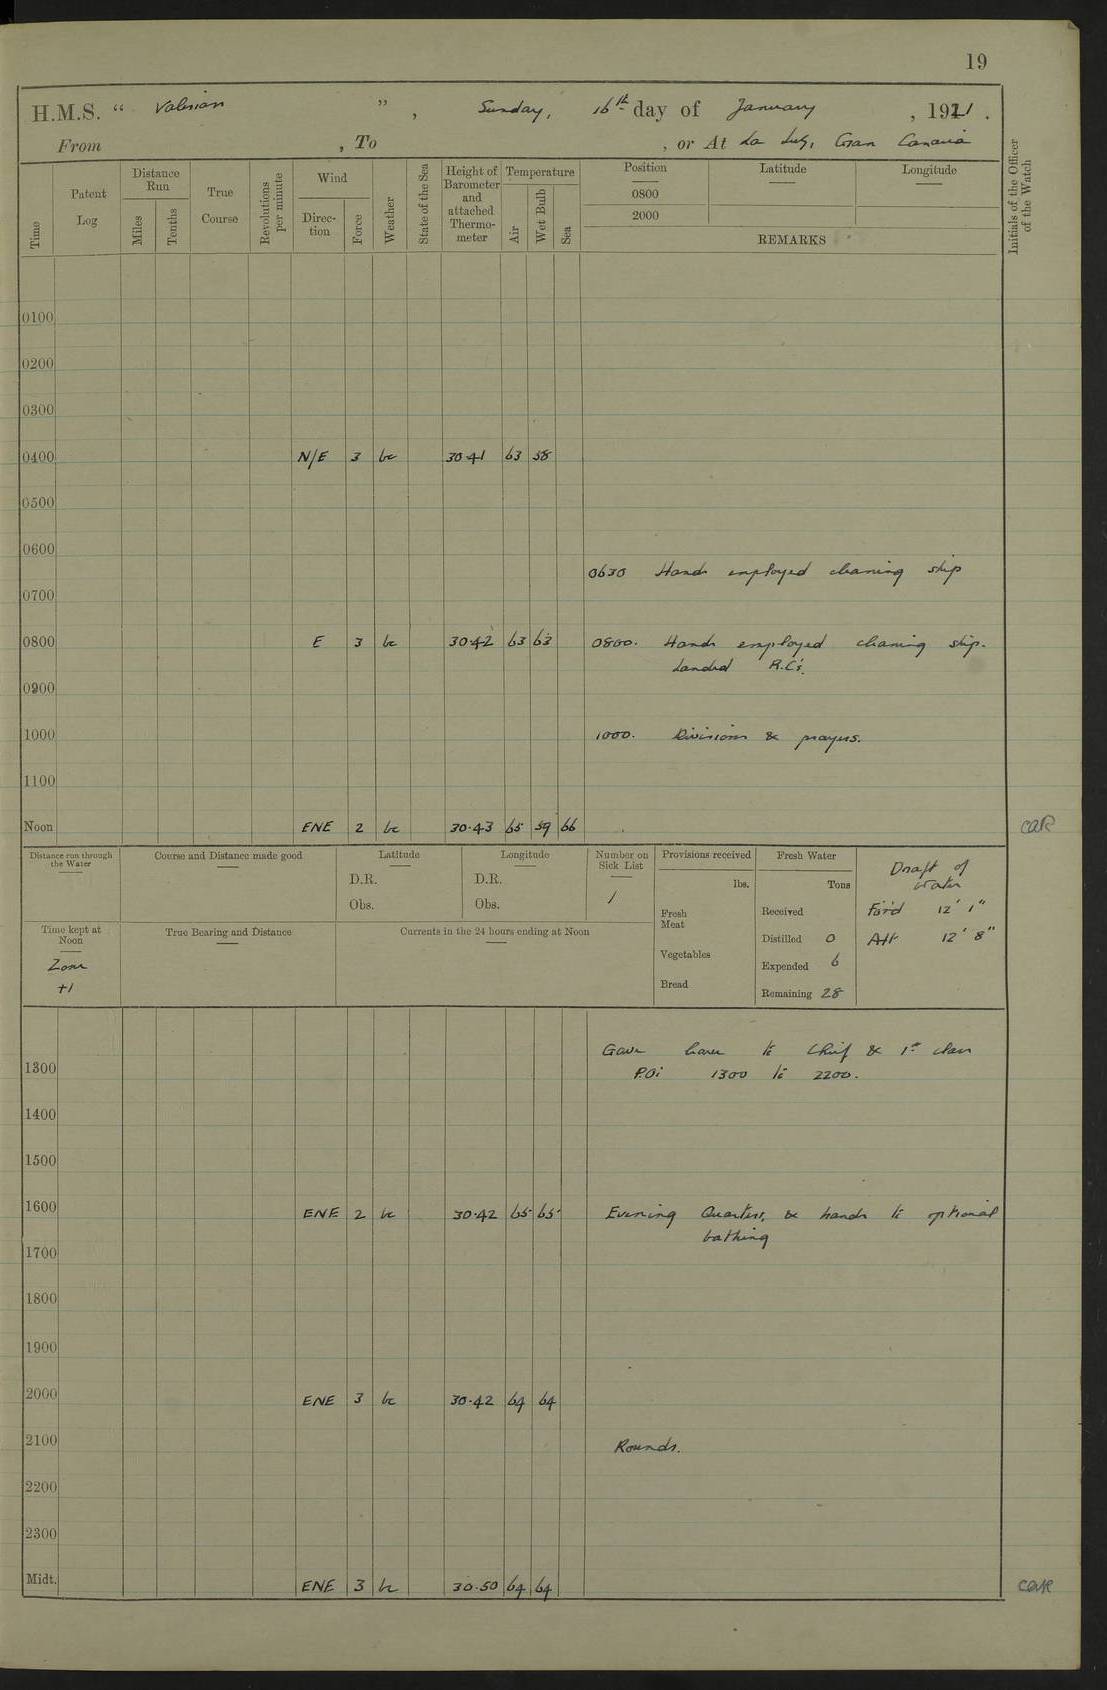 19
H.M.S. “ Valerian ” , Sunday, 16th day of January , 1921 .
From , To , or At La Luz, Gran Canaria
Time
Patent Log
Distance Run
Miles
Tenths
True Course
Revolutions per minute
Wind
Direc-tion
Force
Weather
State of the Sea
Height of Barometer and attached Thermo-meter
Temperature
Air
Wet Bulb
Sea
Position
0800
2000
Latitude
Longitude
REMARKS
Initials of the Officer of the Watch
0100
0200
0300
0400 N/E 3 bc 30.41 63 58
0500
0600
0630 Hands employed cleaning ship
0700
0800 E 3 bc 30.42 63 63 0800. Hands employed cleaning ship.
Landed R.C's.
0900
1000 1000. Divisions & prayers.
1100
Noon ENE 2 bc 30.43 65 59 66 CAR
Distance run through the Water
Course and Distance made good
Latitude
D.R.
Obs.
Longitude
D.R.
Obs.
Number on Sick List
1
Provisions received
lbs.
Fresh Meat
Vegetables
Bread
Fresh Water
Tons
Received
Distilled 0
Expended 6
Remaining 28
Draft of Water
For'd 12' 1"
Aft 12' 8"
Time kept at Noon
Zone
+1
True Bearing and Distance
Currents in the 24 hours ending at Noon
Gave leave to Chief & 1st class
1300 P.O's 1300 to 2200.
1400
1500
1600 ENE 2 bc 30.42 65 65 Evening Quarters, & hands to optional
bathing
1700
1800
1900
2000 ENE 3 bc 30.42 64 64
2100 Rounds.
2200
2300
Midt. ENE 3 bc 30.50 64 64 CAR